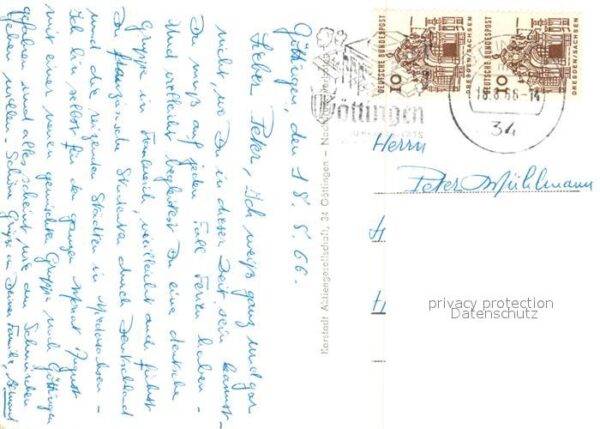 Göttingen, den 18. 8. 66.
Lieber Peter, Ich weiß ganz und gar
nicht, wo Du in dieser Zeit sein kannst -
Du mußt auf jeden Fall Ferien haben -
und vielleicht begleitest Du eine deutsche
Gruppe in Frankreich, vielleicht auch führst
Du französische Studenten durch Deutschland
und die reizenden Städten in Niedersachsen -
Ich bin selbst für den ganzen Monat August
mit einer neuen gemischten Gruppe nach Göttingen
gefahren und alles scheint, wie am Schnürchen
gehen wollen - Schöne Grüße an Deine Familie,
Karstadt Aktiengesellschaft, 34 Göttingen
DEUTSCHE BUNDESPOST
10
DRESDEN/SACHSEN
DEUTSCHE BUNDESPOST
10
DRESDEN/SACHSEN
Göttingen
18.8.66-14
34
Herrn
Peter Mühlmann
privacy protection
Datenschutz